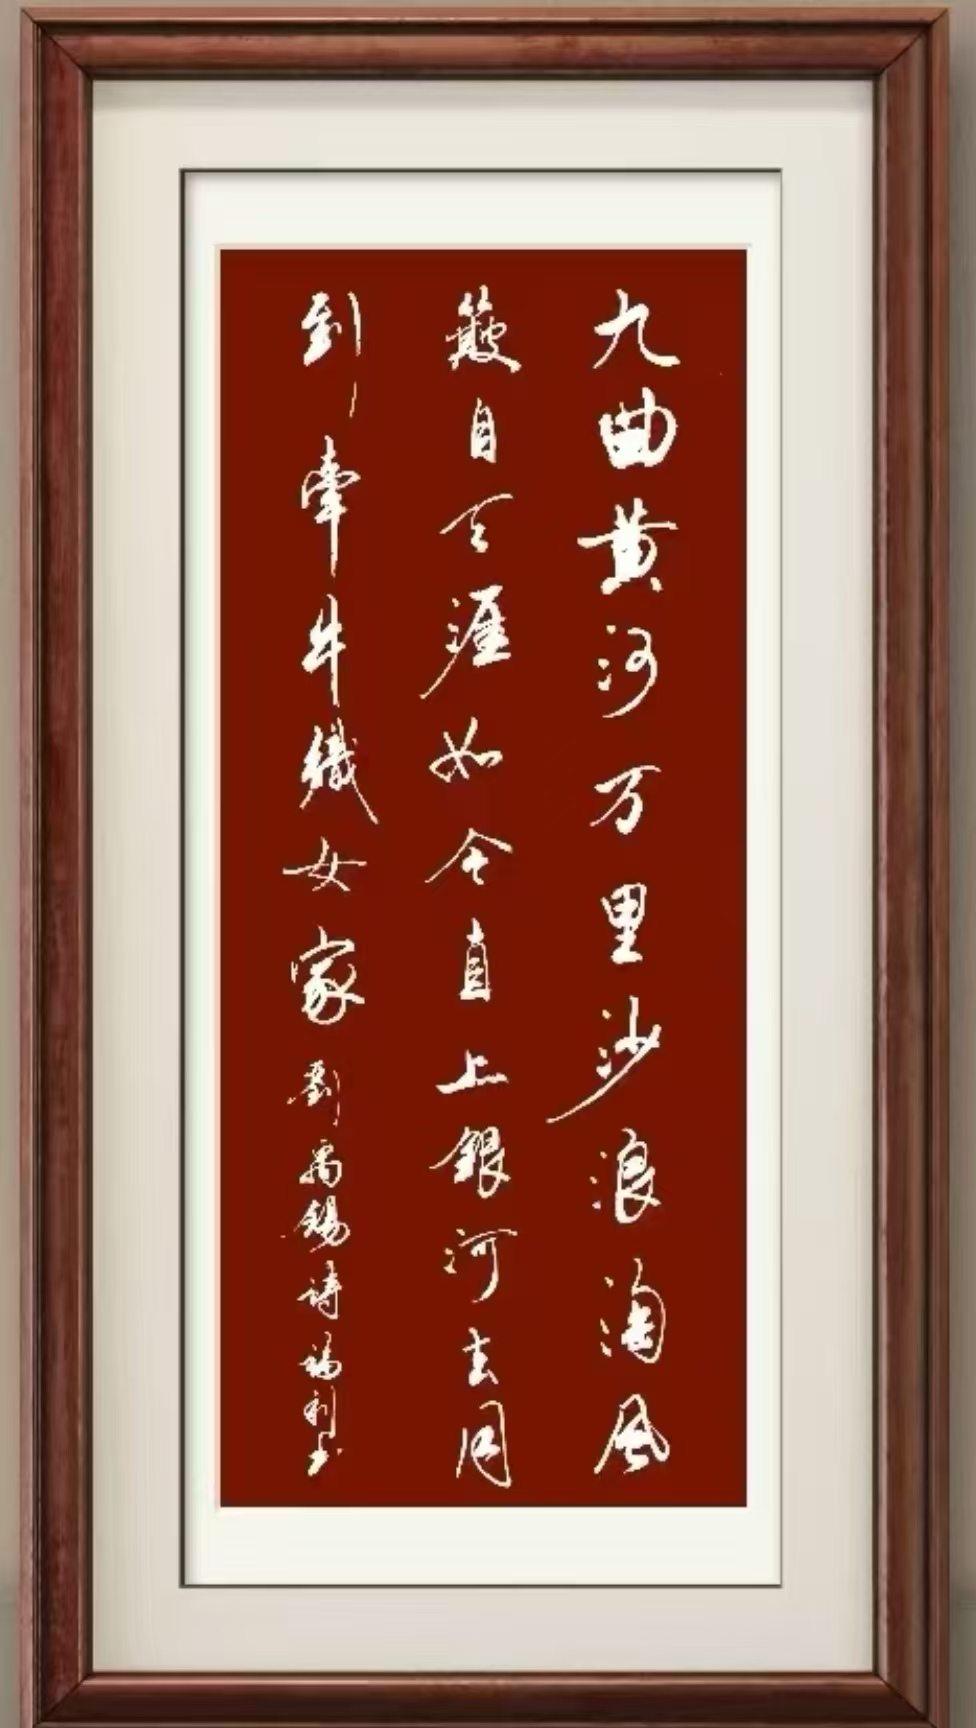 九曲黄河万里沙浪淘风
簸自天涯如今直上銀河去同
到牽牛織女家劉禹錫詩福利书